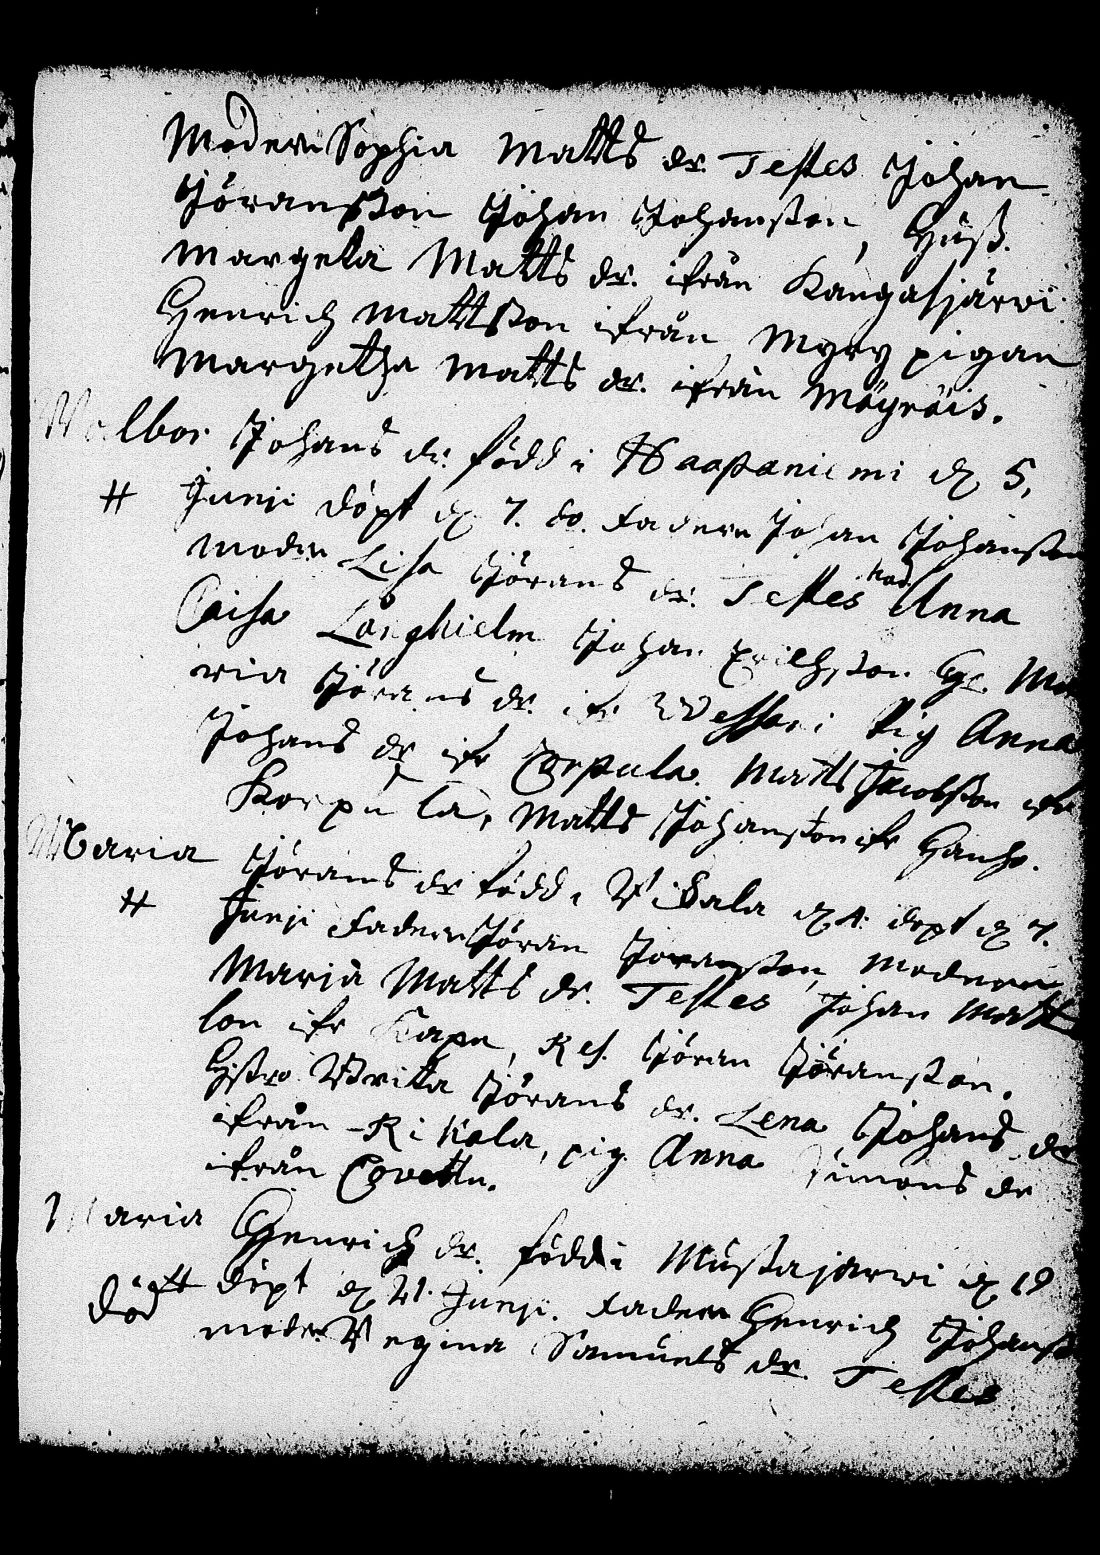 Modern Sophia Matts dr. Testes Johan
Jöransson Johan Johansson, Hust.
Margeta Matts dr. ifrån Kangasjärvi
Henrich Mattsson ifrån Myry pigan
Margetha Matts dr. ifrån Mäyräis.
Walbor Johans dr. född i Haapaniemi d 5,
# Junji döpt d 7. do. Fadern Johan Johansson
modern Lisa Jörans dr. Testes Anna
Caisa Långhielm Johan Erichsson Hu. Ma
ria Jörans dr. ifr Wessari Pig Anna
Johans dr ifr Corpula. Matts Jacobsson ifr
Korpula, Matts Johansson ifr Hauho.
Maria Jörans dr född i Wisala d 4. döpt d 7.
# Junji Fadern Jöran Joransson, modern
Maria Matts dr. Testes Johan Matts
son ifr Kapu, Res. Jöran Jöransson.
Hustro Brita Jörans dr. Lena Johans dr
ifrån Rikala, pig Anna Simons dr
ifrån
Maria Henrich dr. född i Mustajarwi d 19
# död döpt d 21. Junji. Fadern Henrich Johanss
modern Regina Samuels dr. Testes